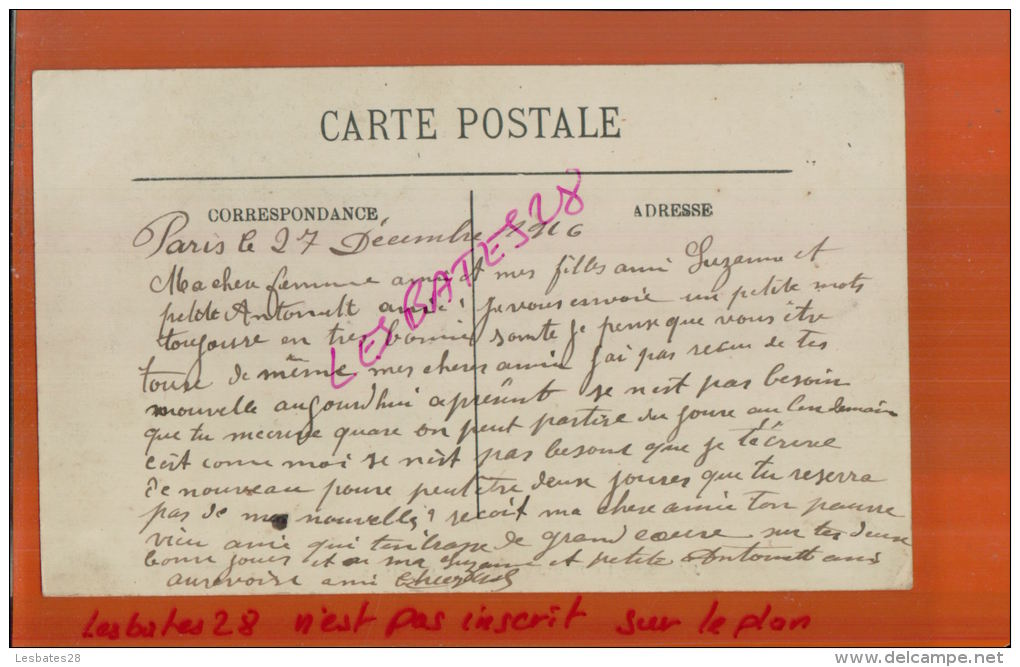 CARTE POSTALE
CORRESPONDANCE
ADRESSE
LESBATES28
Paris le 27 Décembre 1916
Ma chere femme amie et mes filles ami Suzanne et
petite Antonett amie! je vous envoie un petite mots
toujoure en très bonne sante je pense que vous être
toure de même mes cheres amie j'ai pas recu de tes
nouvelle aujourdhui apresent se nest pas besoin
que tu mecrive quare on peut partire du joure au lendemain
cest comme moi se nest pas besond que je t'écrive
de nouveau poure peutêtre deux joures que tu resevra
pas de mes nouvelles recoit ma chere amie ton pauvre
vieu amie qui tembrasse de grand coeure sur tes deux
bonne joues et a ma Suzanne et petite Antonett ami
aurevoire ami
Lesbates28 n'est pas inscrit sur le plan
Lesbates28
www.delcampe.net